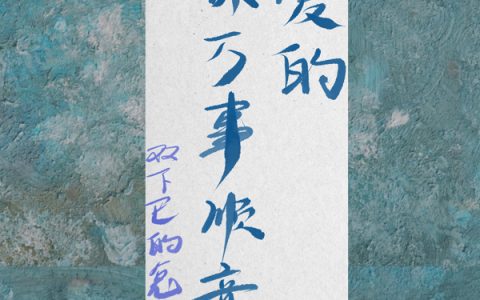 爱的
你万事顺意
双下巴的兔